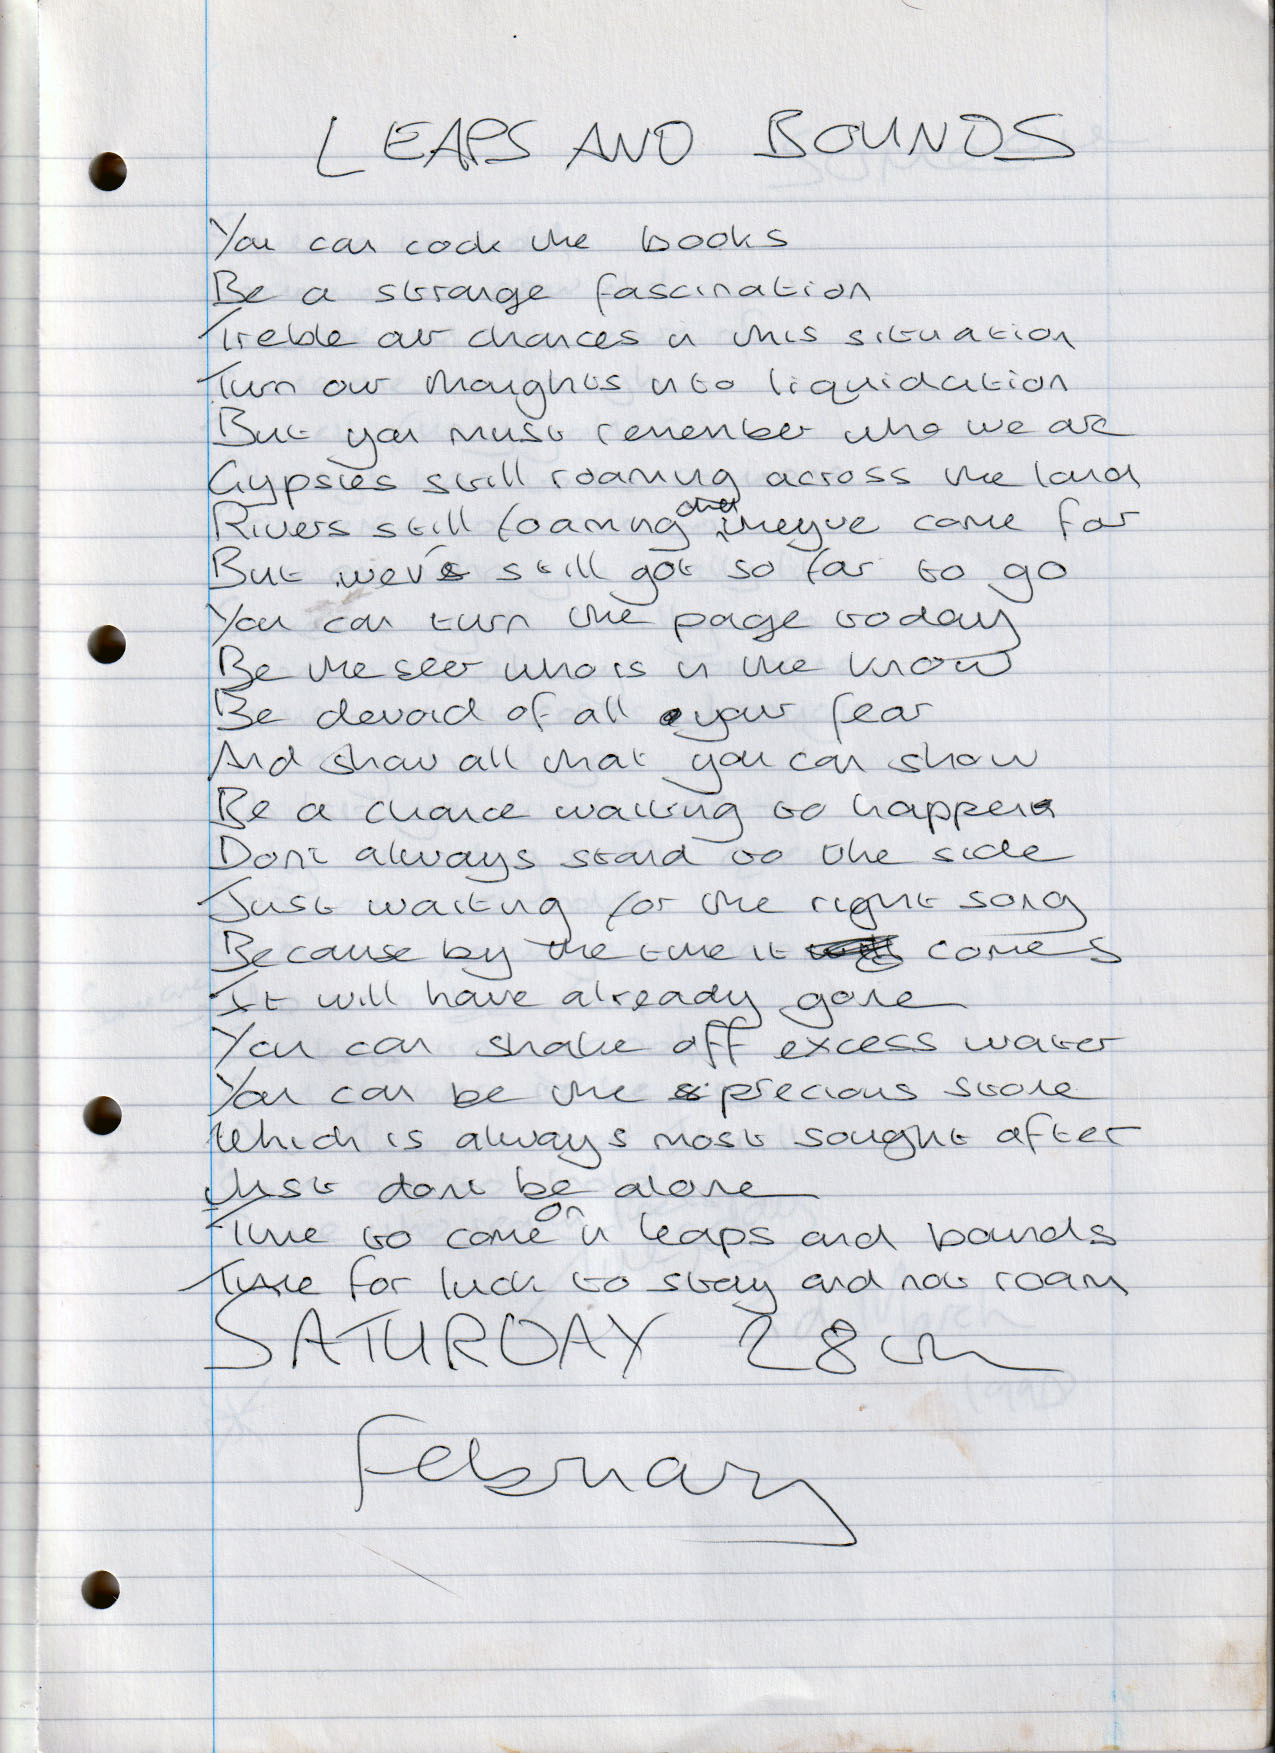 LEAPS AND BOUNDS
You can cook the books
Be a strange fascination
Treble our chances in this situation
Turn our thoughts into liquidation
But you must remember who we are
Gypsies still roaming across the land
Rivers still foaming and theyve come far
But we've still got so far to go
You can turn the page today
Be the seer who is in the know
Be devoid of all your fear
And show all that you can show
Be a chance waiting to happen
Dont always stand to the side
Just waiting for the right song
Because by the time it comes
It will have already gone
You can shake off excess water
You can be the precious stone
Which is always most sought after
Just dont be alone
Time to come on in leaps and bounds
Time for luck to stay and not roam
SATURDAY 28th
February